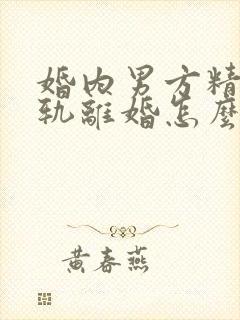 婚内男方精
轨离婚怎麼
黄春燕